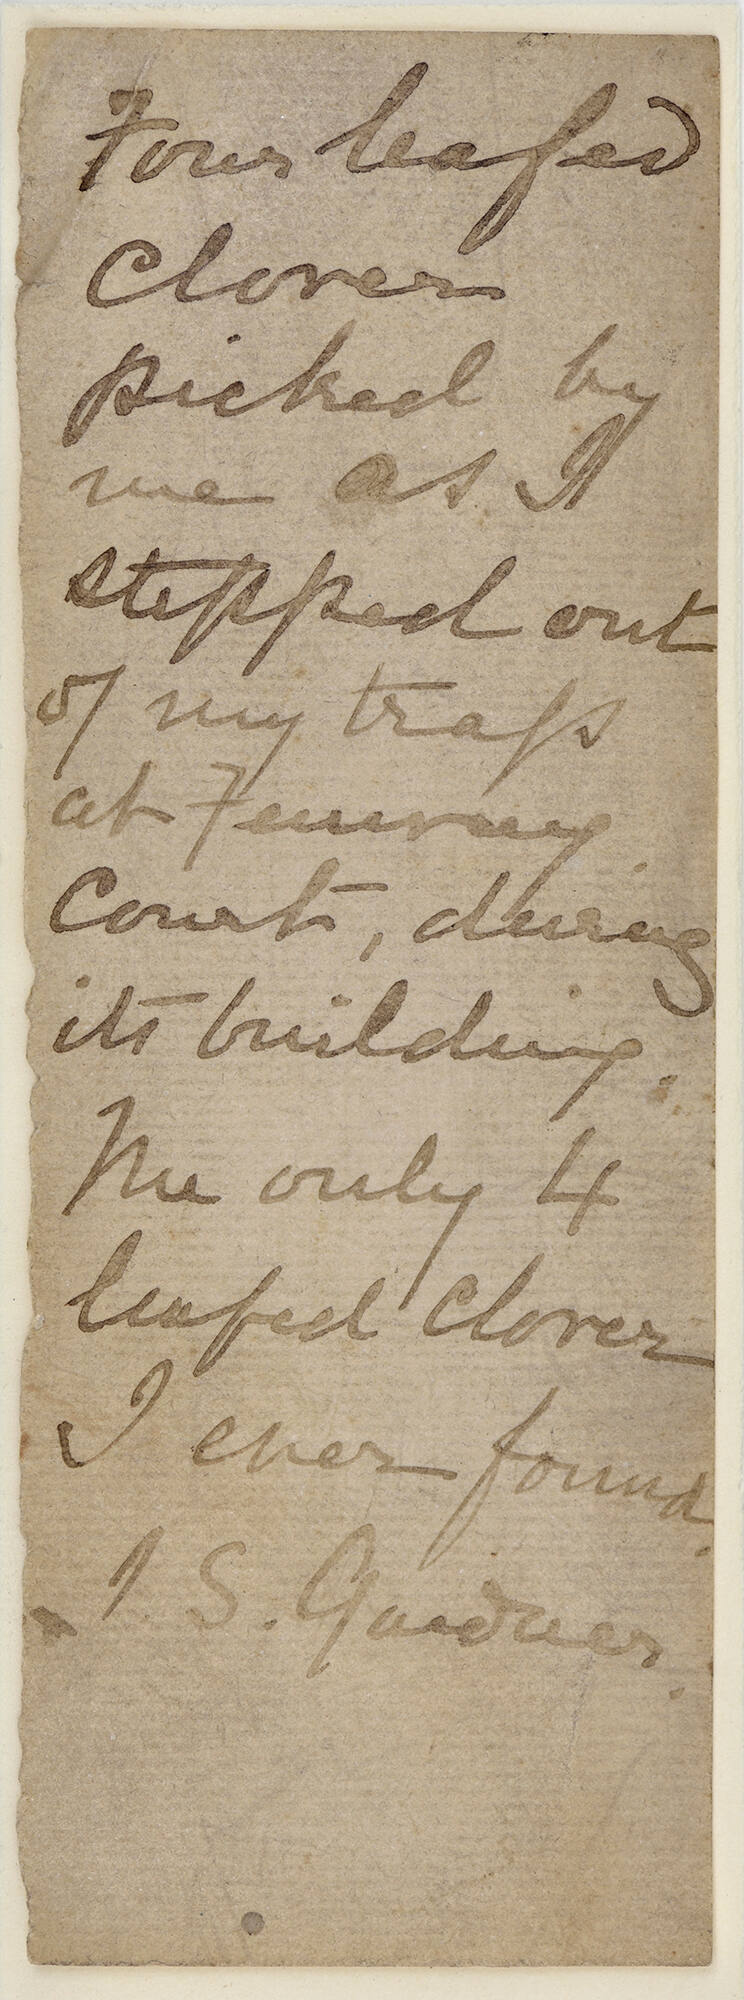 Four leafed
Clover
picked by
me as I
stepped out
of my trap
at Fenway
Court, during
its building.
The only 4
leafed clover
I ever found.
I. S. Gardner.